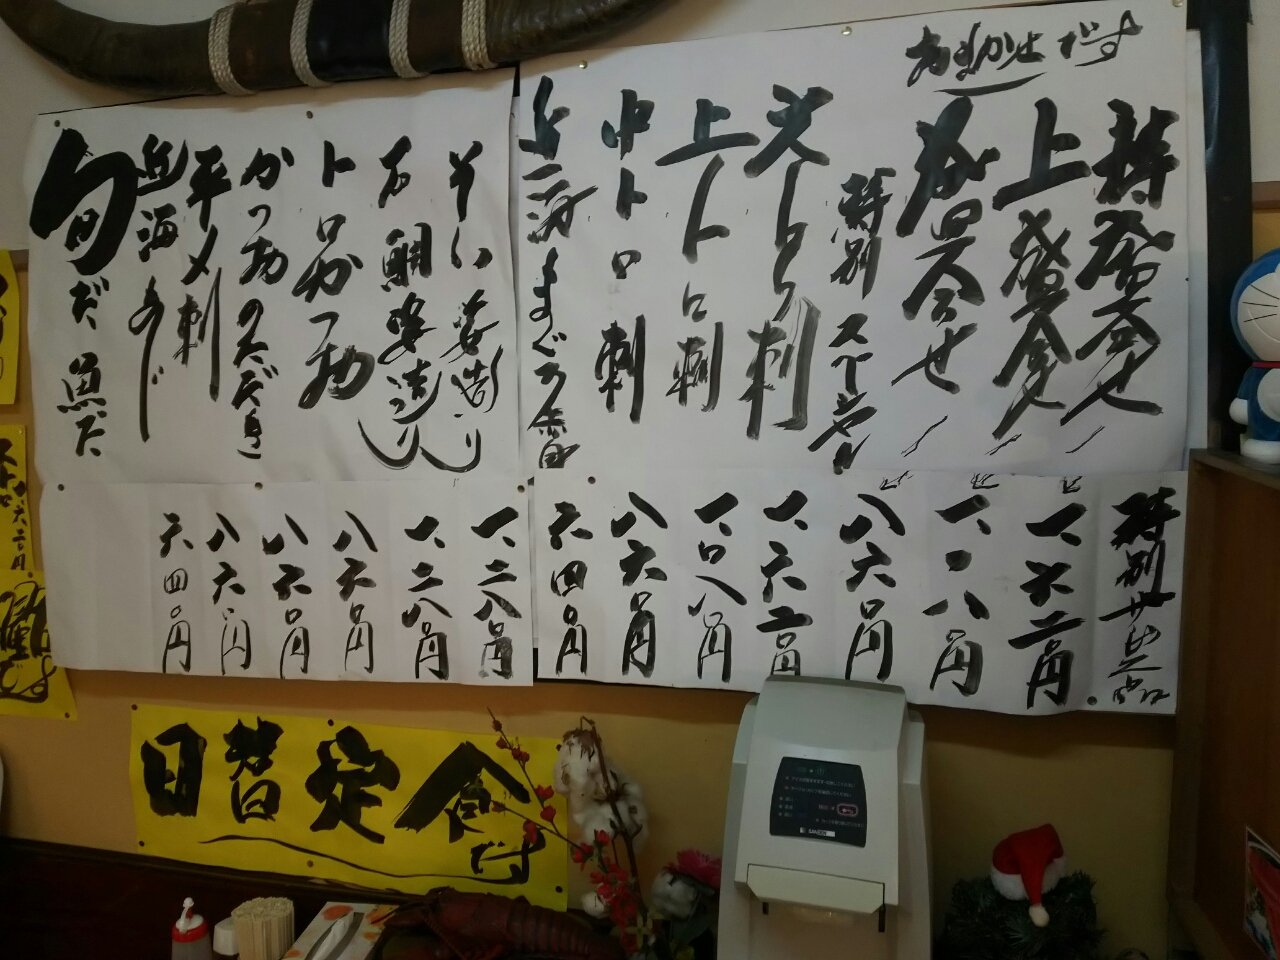 おまかせです
特盛合せ
上盛合せ
盛合せ
特別スペシャル
大トロ刺
上トロ刺
中トロ刺
近海まぐろ
そい姿造り
石鯛姿造り
トロかつお
かつおのたたき
平メ刺
近海あじ
旬だ魚だ
特別サービス品
一、六二〇円
一、〇八〇円
八六〇円
一、六二〇円
一、〇八〇円
八六〇円
六四〇円
一、二八〇円
一、二八〇円
八六〇円
八六〇円
八六〇円
六四〇円
日替定食です